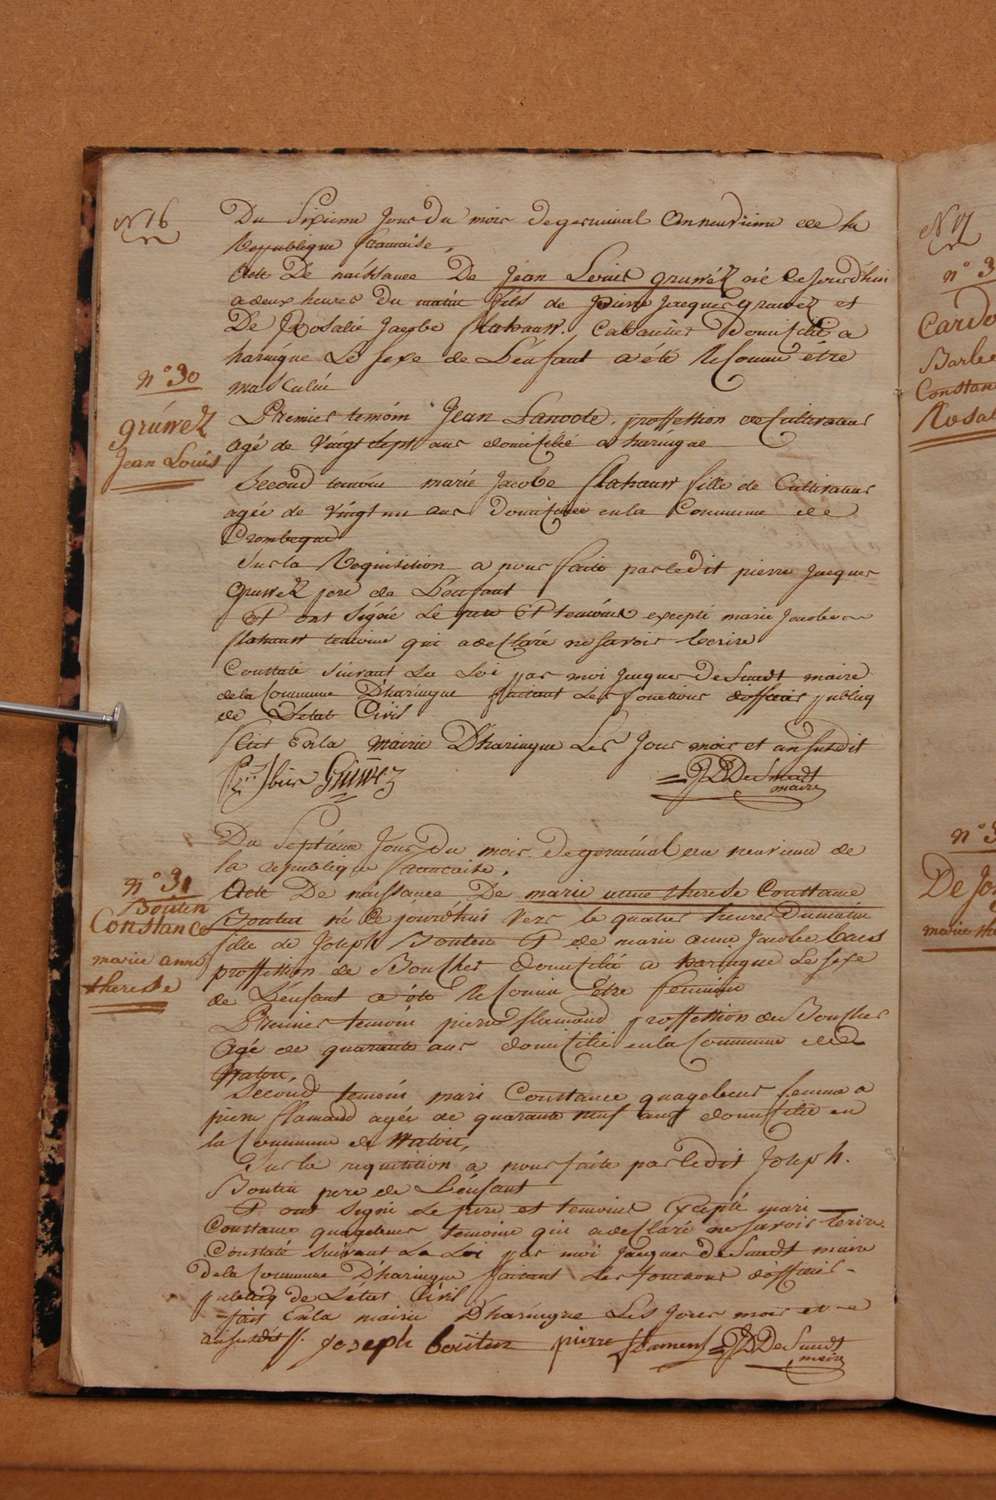 N 16
Du Sixieme Jour du mois de germinal an neuvieme de la
Republique francaise,
Acte De naissance De Jean Louis gruwéz né Cejourd'hui
a deux heures du matin fils de Pierre Jacques gruwez et
De Rosalie Jacobe flahauw, Cabaretier Domicilié a
haringue Le sexe de L'enfant a été Reconnu étre
masculin
n° 30
grúwez
Jean Louis
Premier temoin Jean Lanoote, proffession de Cultivateur
agé de vingt sept ans domicilié a haringue
Second temoin marie Jacobe flahauw fille de Cultivateur
agée de vingt un ans Domiciliée en la Commune de
Crombeque
Sur la Requisition a nous faite par ledit pierre Jacques
Gruwez pere de L'enfant
Et ont signé Le pere Et temoins excepté marie Jacobe
flahauw temoine qui a declaré ne savoir Ecrire
Constaté suivant La Loi par moi Jacques De Smedt maire
de la Commune D'haringue faisant Les fonctions d'officier publiq
de L'etat Civil
fait En la mairie D'haringue Les Jour mois et an susdit
Gruwez
J D De Smedt
maire
Du Septieme Jour Du mois De germinal an neuvieme de
la republique francaise,
n° 31
Boutin
Constance
marie anne
therese
Acte De naissance De marie anne therese Constance
Boutin né Ce jourd'hui vers le quatre heures Du matin
fille de Joseph Bouten Et de marie anne Jacobe
proffession de Boucher domicilié a haringue Le sexe
de L'enfant a été Reconnu Etre feminin
Premier temoin pierre flamand proffession de Boucher
Agé de quarante ans domicilié en la Commune de
Watou,
Second temoin mari Constance quagebeur femme a
pierre flamand agée de quarante neuf ans domicilié en
la Commune de Watou,
Sur la requisition a nous faite par ledit Joseph
Boutin pere de L'enfant
Et ont signé Le pere et temoins Excepté mari
Constance quagebeur temoine qui a declaré ne savoir Ecrire
Constaté suivant La Loi par moi Jacques De Smedt maire
De la Commune D'haringue faisant Les fonctions d'officier
publiq de L'état Civil
fait En la mairie D'haringue Les Jour mois et
an susdit Joseph boutten pierre flamen J D De Smedt
maire
N 17
n° 3
Cardo
Barbe
Constan
Rosal
n° 3
De Jo
marie